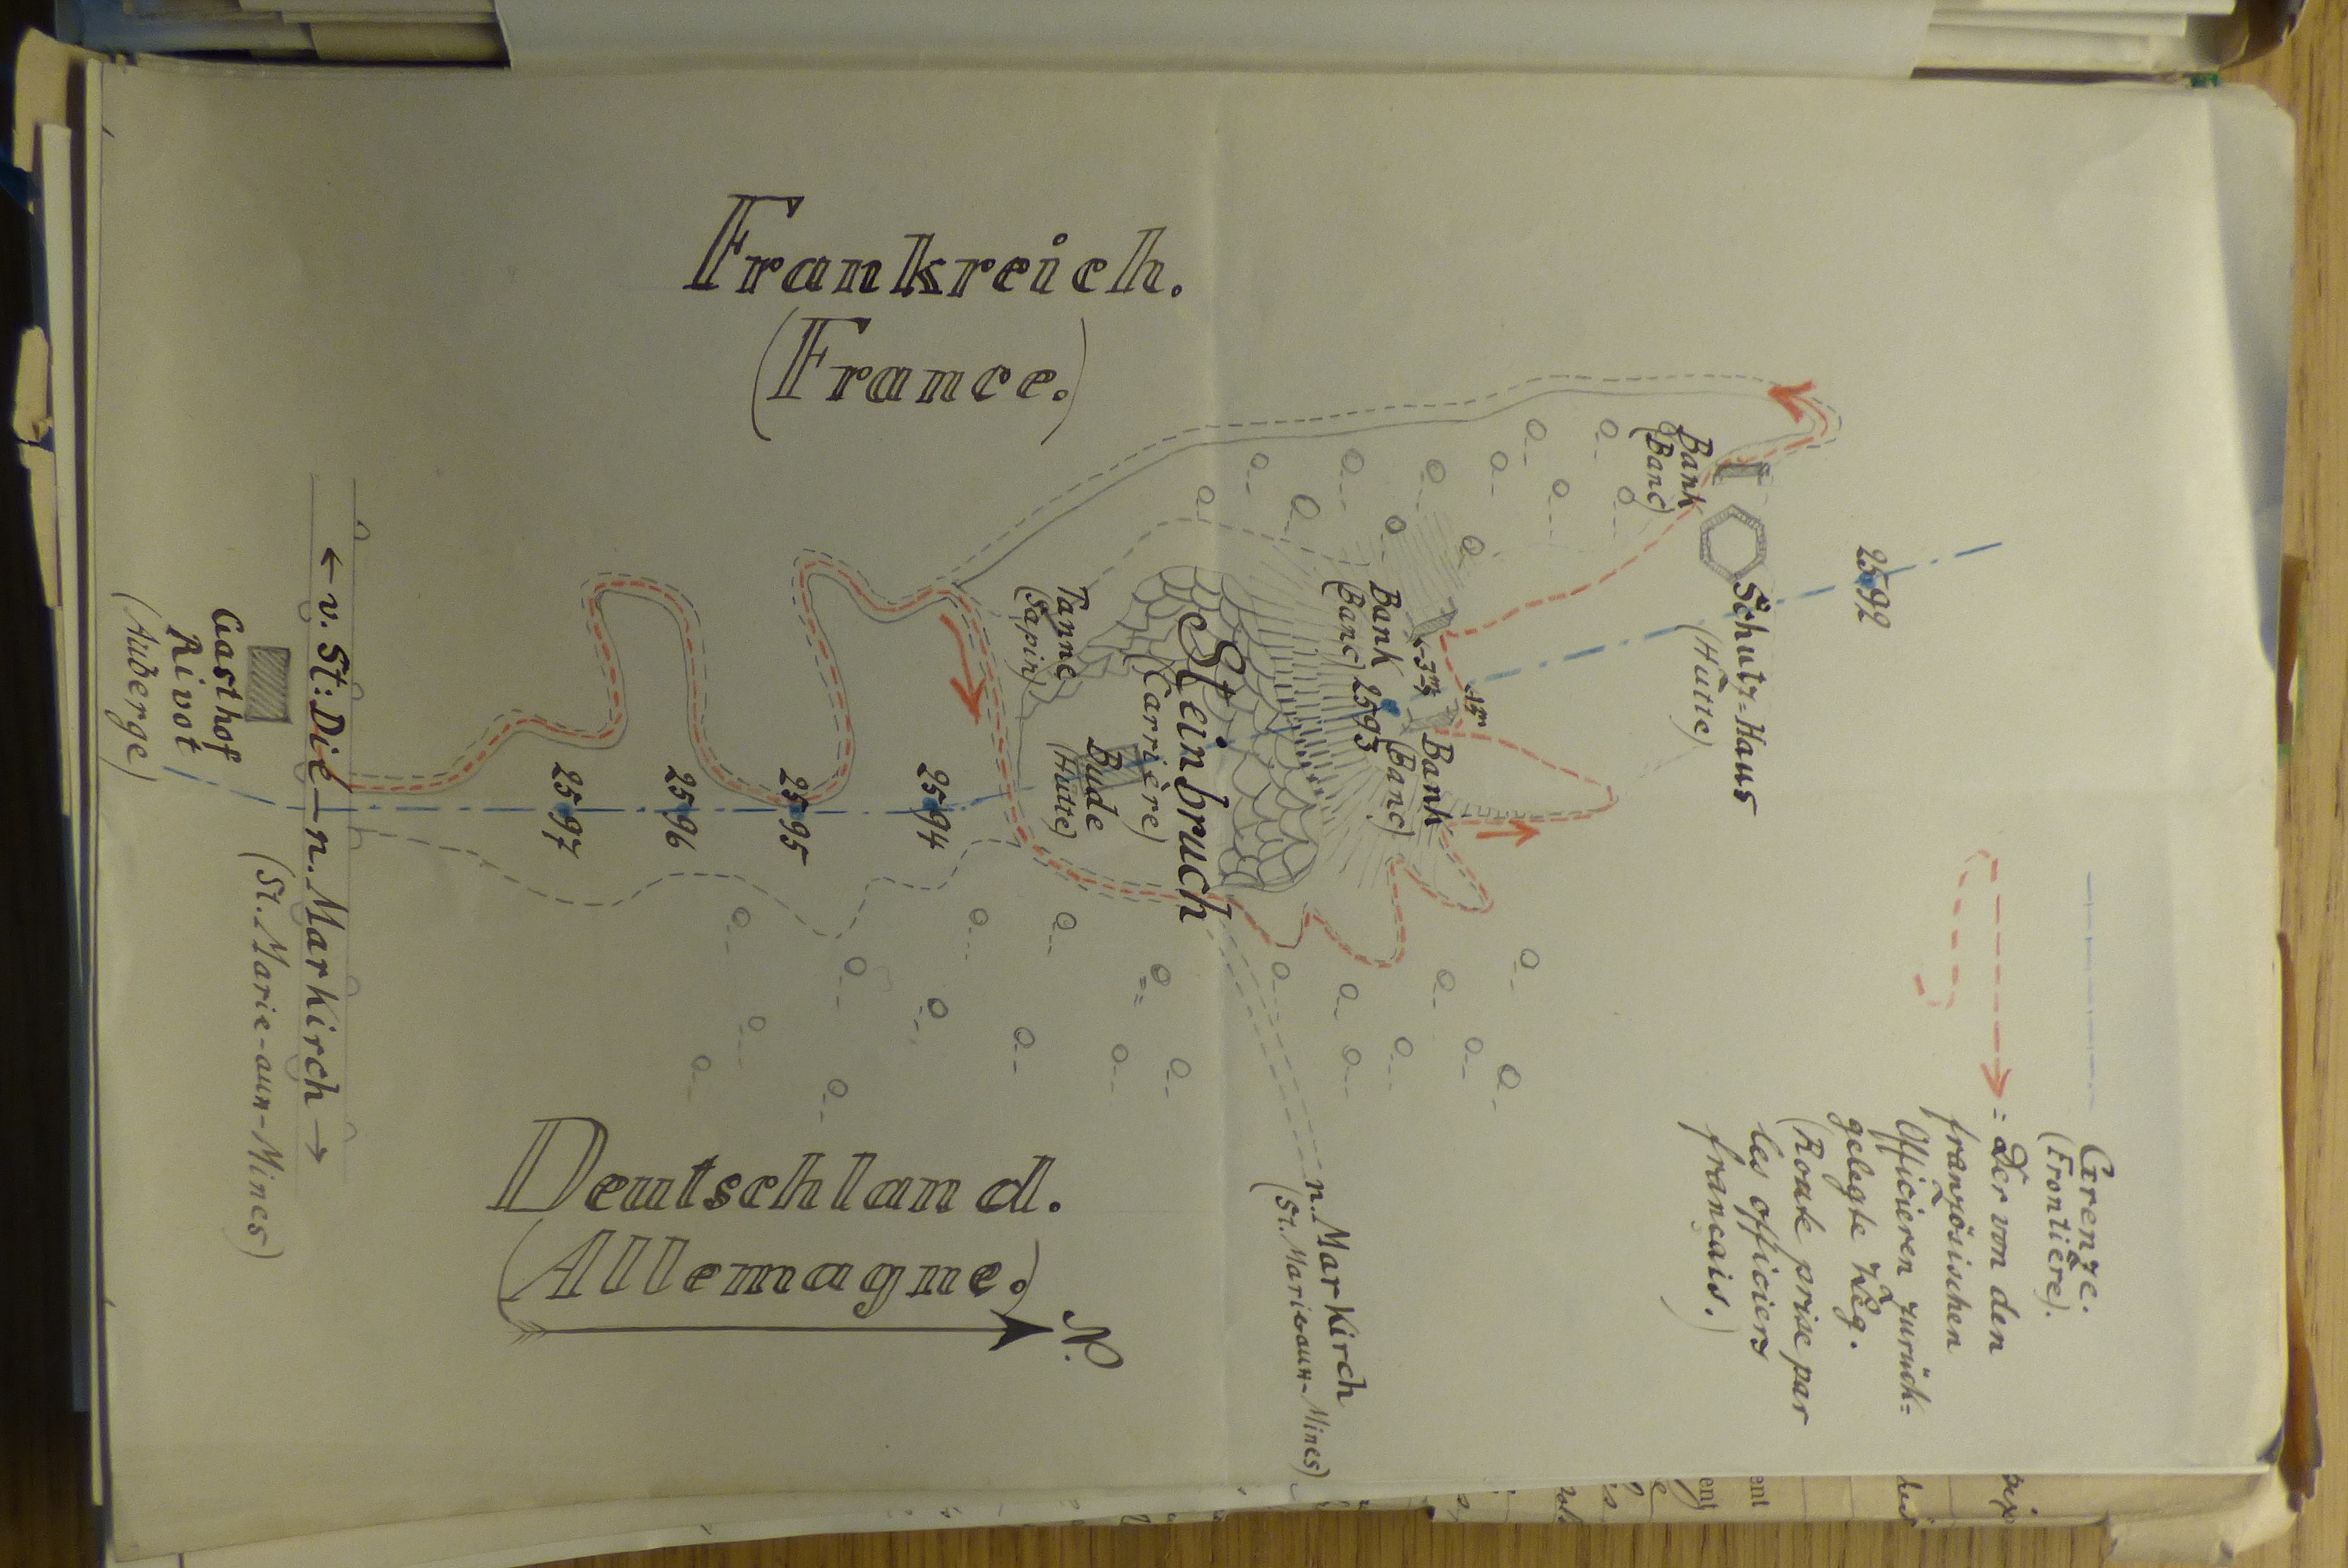 Frankreich.
(France.)
Deutschland.
(Allemagne.)
N.
Grenze.
(Frontière).
= Der von den
französischen
Officieren zurück=
gelegte Weg.
(Route prise par
les officiers
français.)
2592
Schutz=Haus
(Hutte)
Bank
(Banc)
Bank
(Banc)
←3m→
15m
2593
Bank
(Banc)
Steinbruch
(Carrière)
Tanne
(Sapin)
Bude
(Hutte)
2594
2595
2596
2597
n. Markirch
(St. Marie-aux-Mines)
← v. St: Dié – n. Markirch →
(St. Marie-aux-Mines)
Gasthof
Rivot
(Auberge)